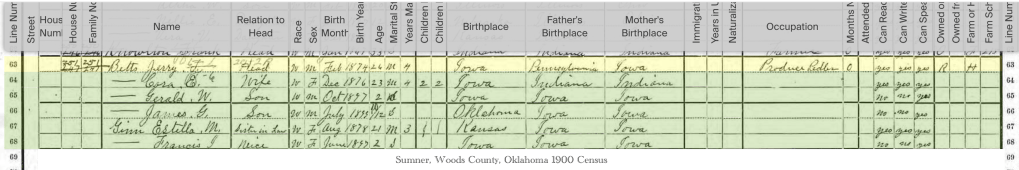 Line Num Street Hous Numl House N Family No Name Relation to Head Race Sex Birth Month Birth Year Marital St Years Ma Children Children Birthplace Father's Birthplace Mother's Birthplace Immigrat Years in U Naturaliz Occupation Months N Attended Can Read Can Write Can Spea Owned or Owned fr Farm or H Farm Sch Line Num
Indiana Indiana
63 Betts Jerry Head W M Feb 1874 26 M 4 Iowa Pennsylvania Iowa Produce Pedler 0 yes yes yes R H 63
64 — Cora E. Wife W F Dec 1876 23 M 4 2 2 Iowa Indiana Indiana yes yes yes 64
65 — Gerald W. Son W M Oct 1897 2 S Iowa Iowa Iowa no no yes 65
66 — James G. Son W M July 1899 10/12 S Oklahoma Iowa Iowa no no yes 66
67 Ginn Estilla M. Sister in Law W F Aug 1878 21 M 3 1 1 Kansas Iowa Iowa yes yes yes 67
68 — Francis I Neice W F June 1897 2 S Iowa Iowa Iowa no no yes 68
69 Sumner, Woods County, Oklahoma 1900 Census 69